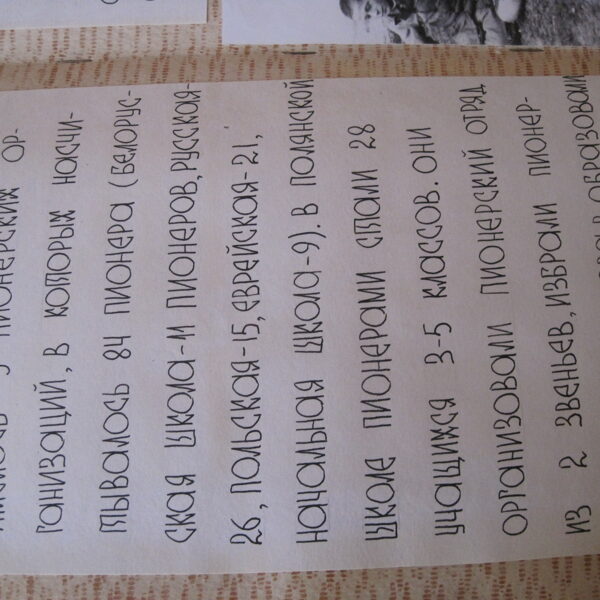 ПИОНЕРСКИХ ОР-
ГАНИЗАЦИЙ, В КОТОРЫХ НАСЧИ-
ТЫВАЛОСЬ 84 ПИОНЕРА (БЕЛОРУС-
СКАЯ ШКОЛА-11 ПИОНЕРОВ, РУССКАЯ-
26, ПОЛЬСКАЯ-15, ЕВРЕЙСКАЯ-21,
НАЧАЛЬНАЯ ШКОЛА-9). В ПОЛЯНСКОЙ
ШКОЛЕ ПИОНЕРАМИ СТАЛИ 28
УЧАЩИХСЯ 3-5 КЛАССОВ. ОНИ
ОРГАНИЗОВАЛИ ПИОНЕРСКИЙ ОТРЯД
ИЗ 2 ЗВЕНЬЕВ, ИЗБРАЛИ ПИОНЕР-
ОБРАЗОВАЛИ